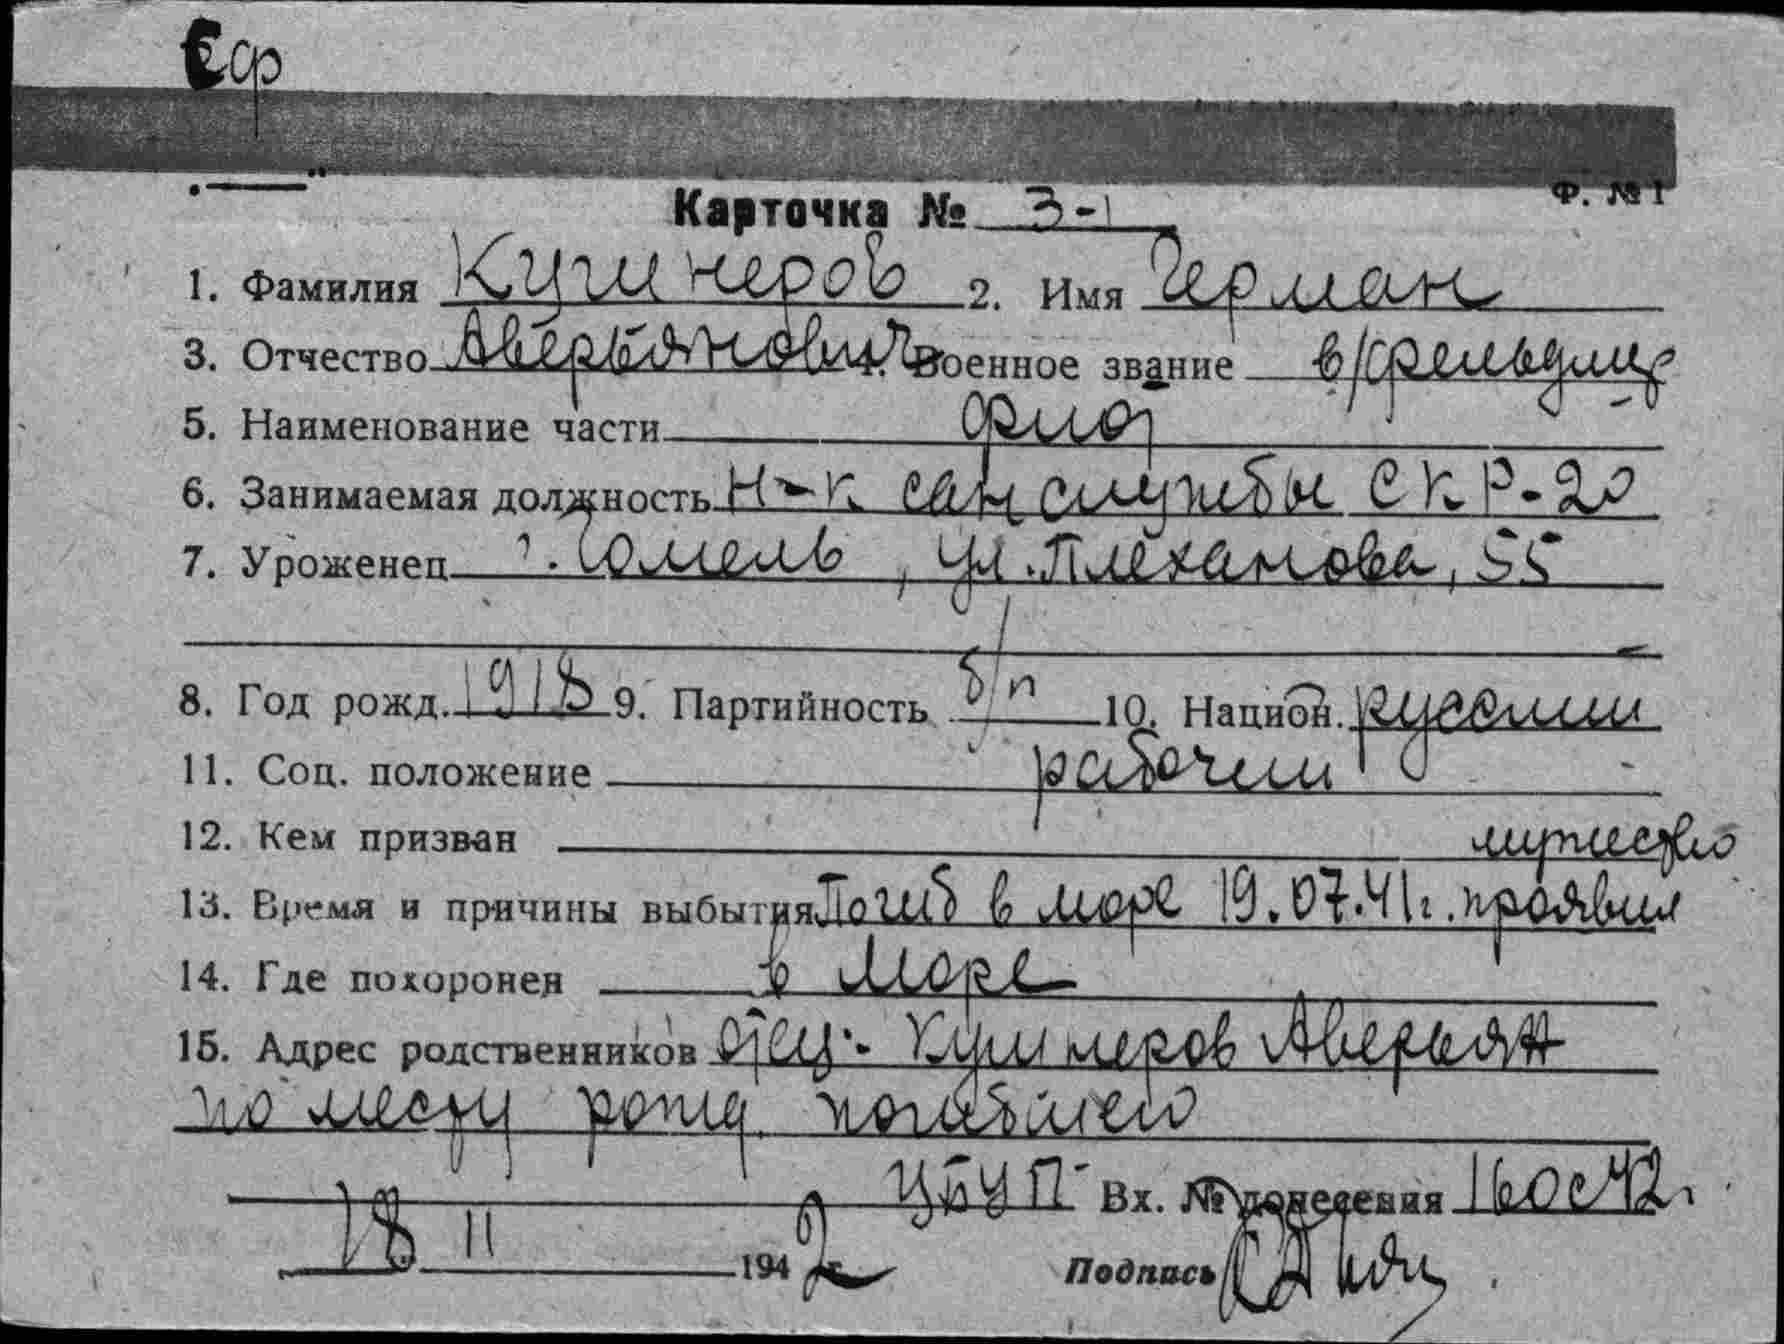 Ф. № 1
Карточка № 3-1
1. Фамилия Кушнеров 2. Имя Герман
3. Отчество Аверьянович 4. Военное звание в/фельдшер
5. Наименование части флот
6. Занимаемая должность Н-к санслужбы СКР-20
7. Уроженец г. Гомель, ул. Плеханова, 55
8. Год рожд. 1918 9. Партийность б/п 10. Национ. русский
11. Соц. положение рабочий
12. Кем призван
мужество
13. Время и причины выбытия Погиб в море 19.07.41г. проявил
14. Где похоронен в море
15. Адрес родственников отец - Кушнеров Аверьян
по месту рожд. погибшего
УБУП Вх. № донесения 160с 42г.
18 II 1942
Подпись